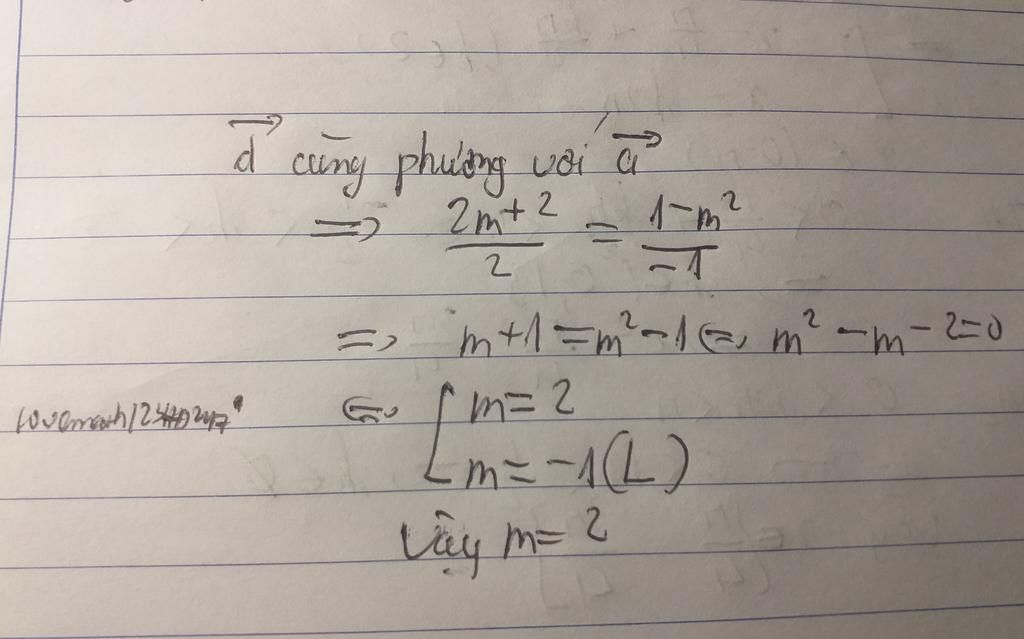 d⃗ cùng phương với a⃗
=> (2m+2)/2 = (1-m²)/-1
=> m+1=m²-1 <=> m²-m-2=0
<=> [ m=2
m=-1(L)
Vậy m=2